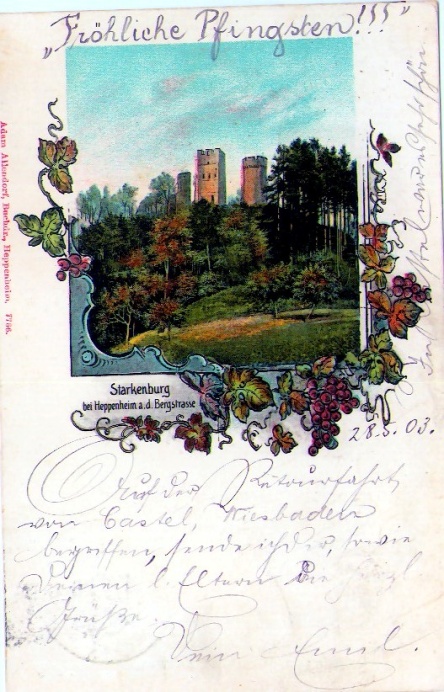 „Fröhliche Pfingsten!!!"
Adam Allendorf, Buchdr., Heppenheim. 7796.
Starkenburg
bei Heppenheim a.d. Bergstrasse
28.5.03.
Auf der Retourfahrt
von Castel, Wiesbaden
begriffen, sende ich dir, sowie
Deinen l. Eltern die herzl.
Grüße.
Dein Emil.